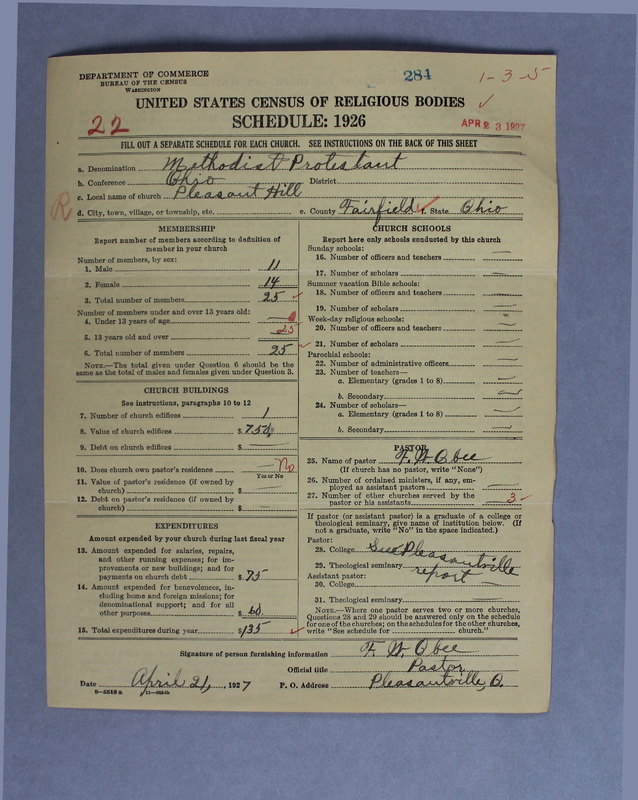 DEPARTMENT OF COMMERCE
BUREAU OF THE CENSUS
WASHINGTON
284
1-3-5
UNITED STATES CENSUS OF RELIGIOUS BODIES
22
SCHEDULE: 1926
APR 23 1927
FILL OUT A SEPARATE SCHEDULE FOR EACH CHURCH. SEE INSTRUCTIONS ON THE BACK OF THIS SHEET
a. Denomination Methodist Protestant
b. Conference Ohio District
c. Local name of church Pleasant Hill
R d. City, town, village, or township, etc. e. County Fairfield f. State Ohio
MEMBERSHIP
Report number of members according to definition of member in your church
Number of members, by sex:
1. Male 11
2. Female 14
3. Total number of members 25
Number of members under and over 13 years old:
4. Under 13 years of age
5. 13 years old and over 25
6. Total number of members 25
NOTE.—The total given under Question 6 should be the
same as the total of males and females given under Question 3.
CHURCH BUILDINGS
See instructions, paragraphs 10 to 12
7. Number of church edifices 1
8. Value of church edifices $ 750
9. Debt on church edifices $ —
10. Does church own pastor's residence No
Yes or No
11. Value of pastor's residence (if owned by
church) $ —
12. Debt on pastor's residence (if owned by
church) $ —
EXPENDITURES
Amount expended by your church during last fiscal year
13. Amount expended for salaries, repairs,
and other running expenses; for im-
provements or new buildings; and for
payments on church debt $ 75
14. Amount expended for benevolences, in-
cluding home and foreign missions; for
denominational support; and for all
other purposes $ 60
15. Total expenditures during year $ 135
CHURCH SCHOOLS
Report here only schools conducted by this church
Sunday schools:
16. Number of officers and teachers —
17. Number of scholars —
Summer vacation Bible schools:
18. Number of officers and teachers —
19. Number of scholars —
Week-day religious schools:
20. Number of officers and teachers —
21. Number of scholars —
Parochial schools:
22. Number of administrative officers —
23. Number of teachers—
a. Elementary (grades 1 to 8) —
b. Secondary —
24. Number of scholars—
a. Elementary (grades 1 to 8) —
b. Secondary —
PASTOR
25. Name of pastor F. W. Obee
(If church has no pastor, write "None")
26. Number of ordained ministers, if any, em-
ployed as assistant pastors —
27. Number of other churches served by the
pastor or his assistants 3
If pastor (or assistant pastor) is a graduate of a college or
theological seminary, give name of institution below. (If
not a graduate, write "No" in the space indicated.)
Pastor:
28. College See Pleasantville
29. Theological seminary report
Assistant pastor:
30. College —
31. Theological seminary —
NOTE.—Where one pastor serves two or more churches,
Questions 28 and 29 should be answered only on the schedule
for one of the churches; on the schedules for the other churches,
write "See schedule for church."
Signature of person furnishing information F. W. Obee
Official title Pastor
Date April 21, , 1927 P. O. Address Pleasantville, O.